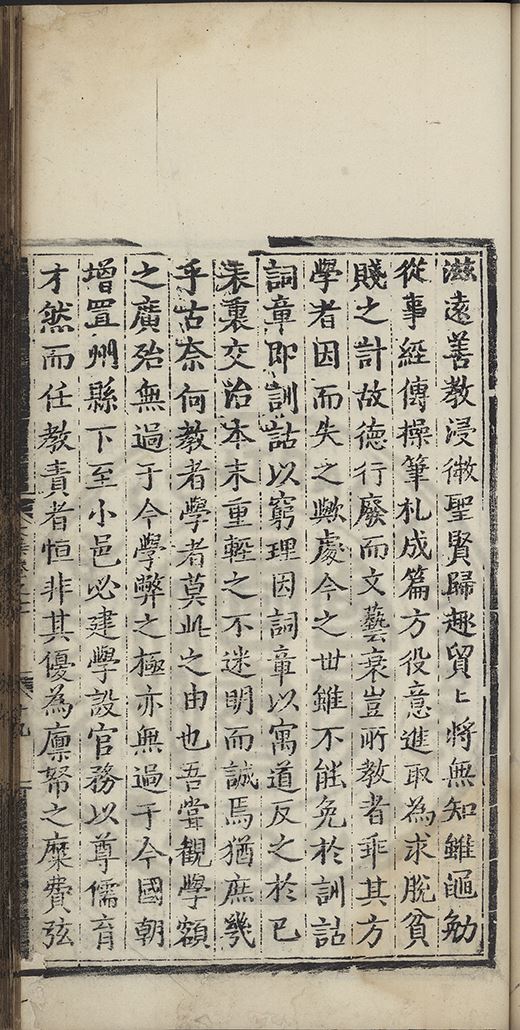 滋遠善教浸微聖賢歸趣貿〻將無知雖黽勉
從事經傳操筆札成篇方役意進取為求脫貧
賤之計故德行廢而文藝衰豈所教者乖其方
學者因而失之歟處今之世雖不能免於訓詁
詞章即訓詁以窮理因詞章以寓道反之於己
表裏交治本末重輕之不迷明而誠焉猶庶幾
乎古奈何教者學者莫此之由也吾嘗觀學額
之廣殆無過于今學弊之極亦無過于今國朝
增置州縣下至小邑必建學設官務以尊儒育
才然而任教責者恒非其優為廩帑之糜費弦